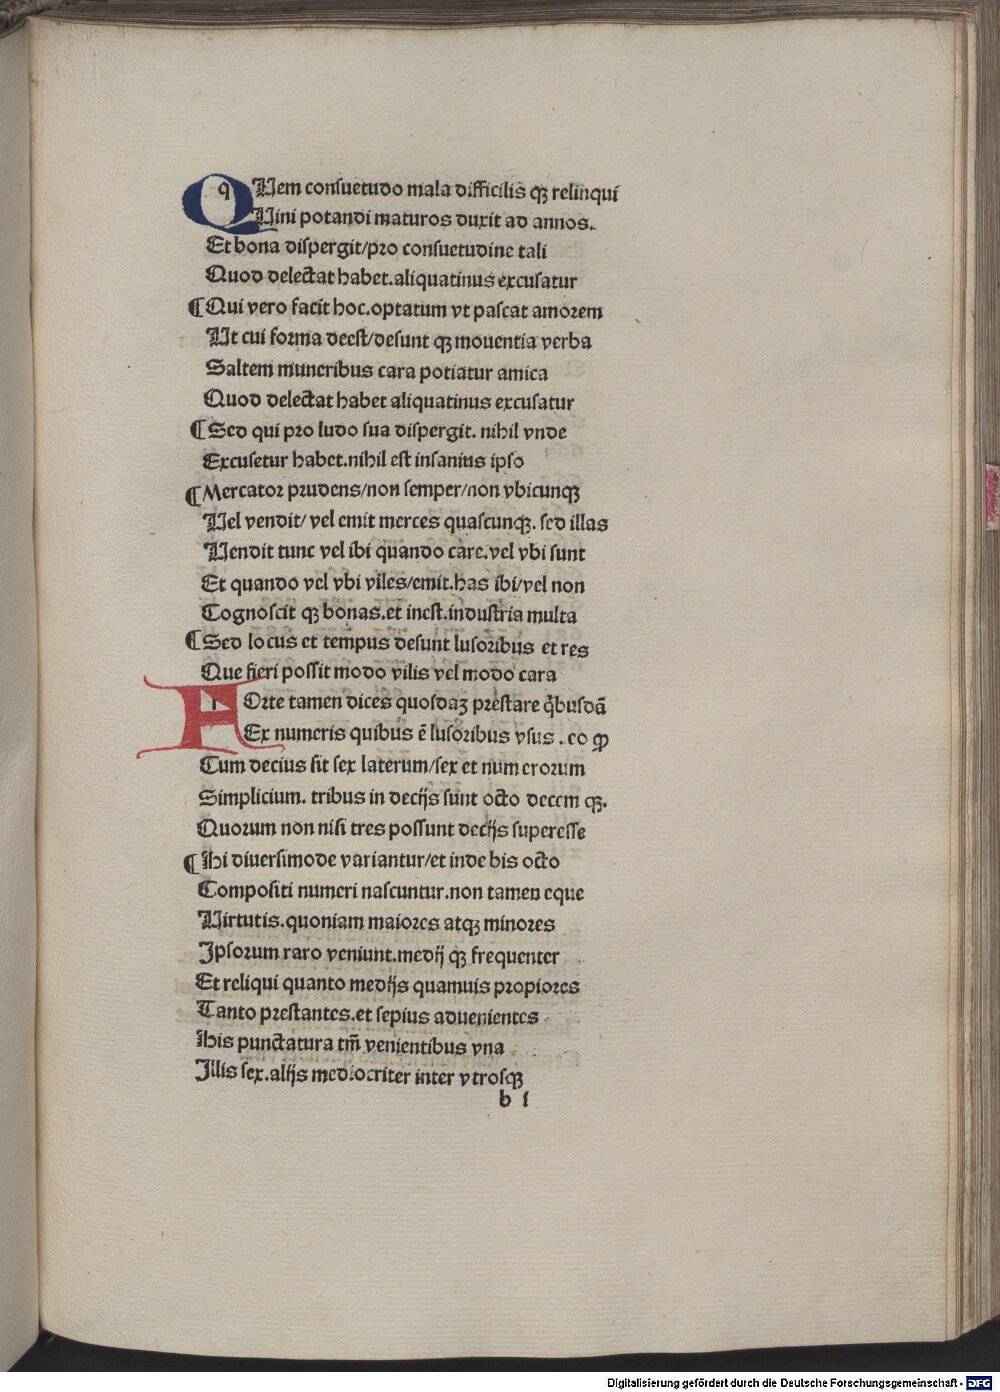 QUem consuetudo mala difficilis qꝫ relinqui
Uini potandi maturos duxit ad annos.
Et bona dispergit/pro consuetudine tali
Quod delectat habet.aliquatinus excusatur
¶Qui vero facit hoc.optatum vt pascat amorem
Ut cui forma deest/desunt qꝫ mouentia verba
Saltem muneribus cara potiatur amica
Quod delectat habet aliquatinus excusatur
¶Sed qui pro ludo sua dispergit. nihil vnde
Excusetur habet.nihil est insanius ipso
¶Mercator prudens/non semper/non vbicunqꝫ
Uel vendit/ vel emit merces quascunqꝫ. sed illas
Uendit tunc vel ibi quando care.vel vbi sunt
Et quando vel vbi viles/emit.has ibi/vel non
Cognoscit qꝫ bonas.et inest.industria multa
¶Sed locus et tempus desunt lusoribus et res
Que fieri possit modo vilis vel modo cara
FOrte tamen dices quosdaꝫ prestare q̄busdā
Ex numeris quibus ē lusoribus vsus .eo ꝙ
Cum decius sit sex laterum/sex et numerorum
Simplicium. tribus in decijs sunt octo decem qꝫ.
Quorum non nisi tres possunt decijs superesse
¶Hi diuersimode variantur/et inde bis octo
Compositi numeri nascuntur.non tamen eque
Uirtutis.quoniam maiores atqꝫ minores
Ipsorum raro veniunt.medij qꝫ frequenter
Et reliqui quanto medijs quamuis propiores
Tanto prestantes.et sepius aduenientes
His punctatura tm̄ venientibus vna
Illis sex.alijs mediocriter inter vtrosqꝫ
b i
Digitalisierung gefördert durch die Deutsche Forschungsgemeinschaft - DFG